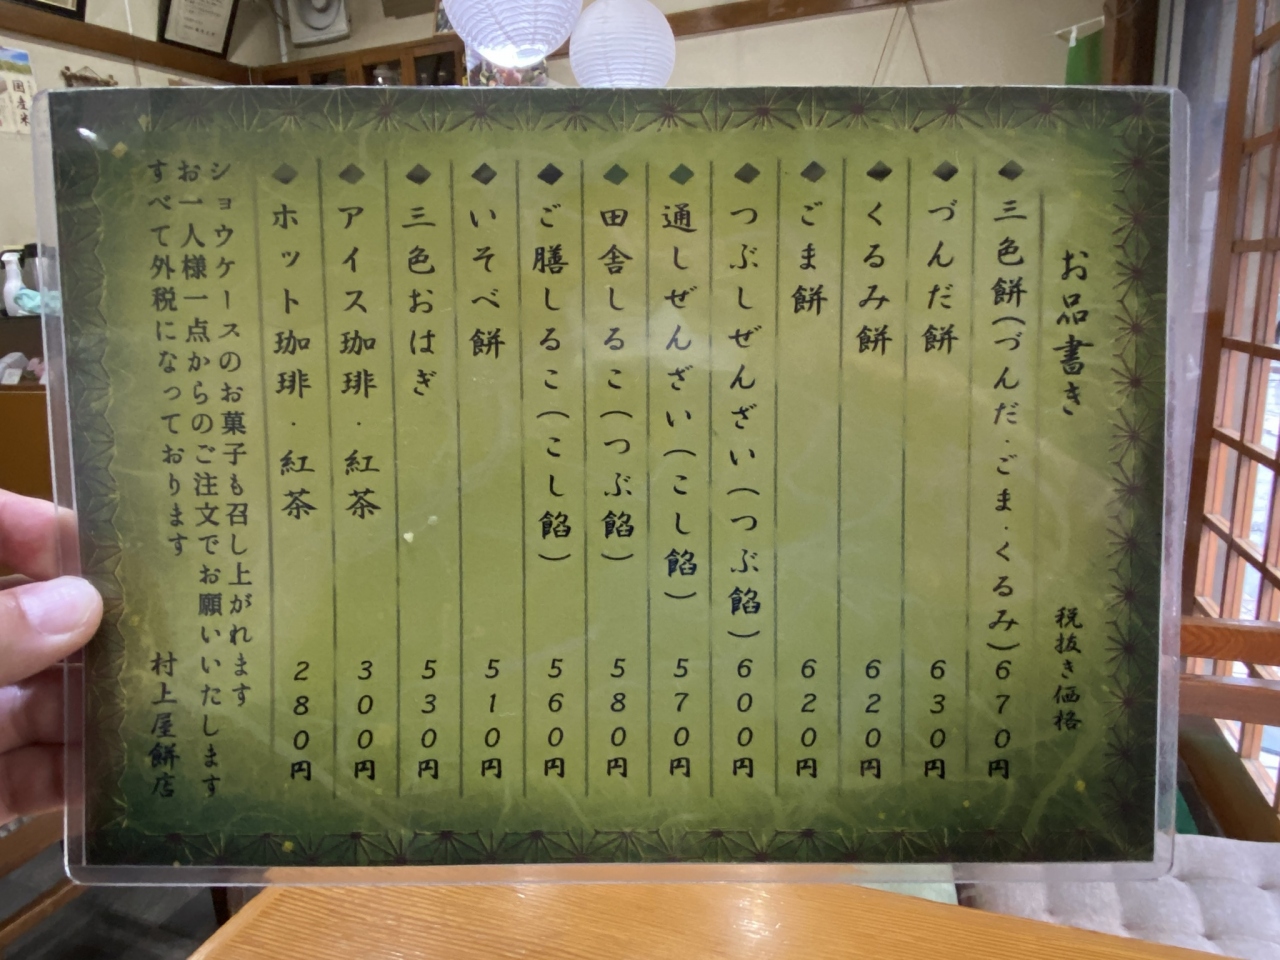 お品書き 税抜き価格
◆三色餅(づんだ・ごま・くるみ) 670円
◆づんだ餅 630円
◆くるみ餅 620円
◆ごま餅 620円
◆つぶしぜんざい(つぶ餡) 600円
◆通しぜんざい(こし餡) 570円
◆田舎しるこ(つぶ餡) 580円
◆ご膳しるこ(こし餡) 560円
◆いそべ餅 510円
◆三色おはぎ 530円
◆アイス珈琲・紅茶 300円
◆ホット珈琲・紅茶 280円
ショウケースのお菓子も召し上がれます
お一人様一点からのご注文でお願いいたします
すべて外税になっております 村上屋餅店
国産米